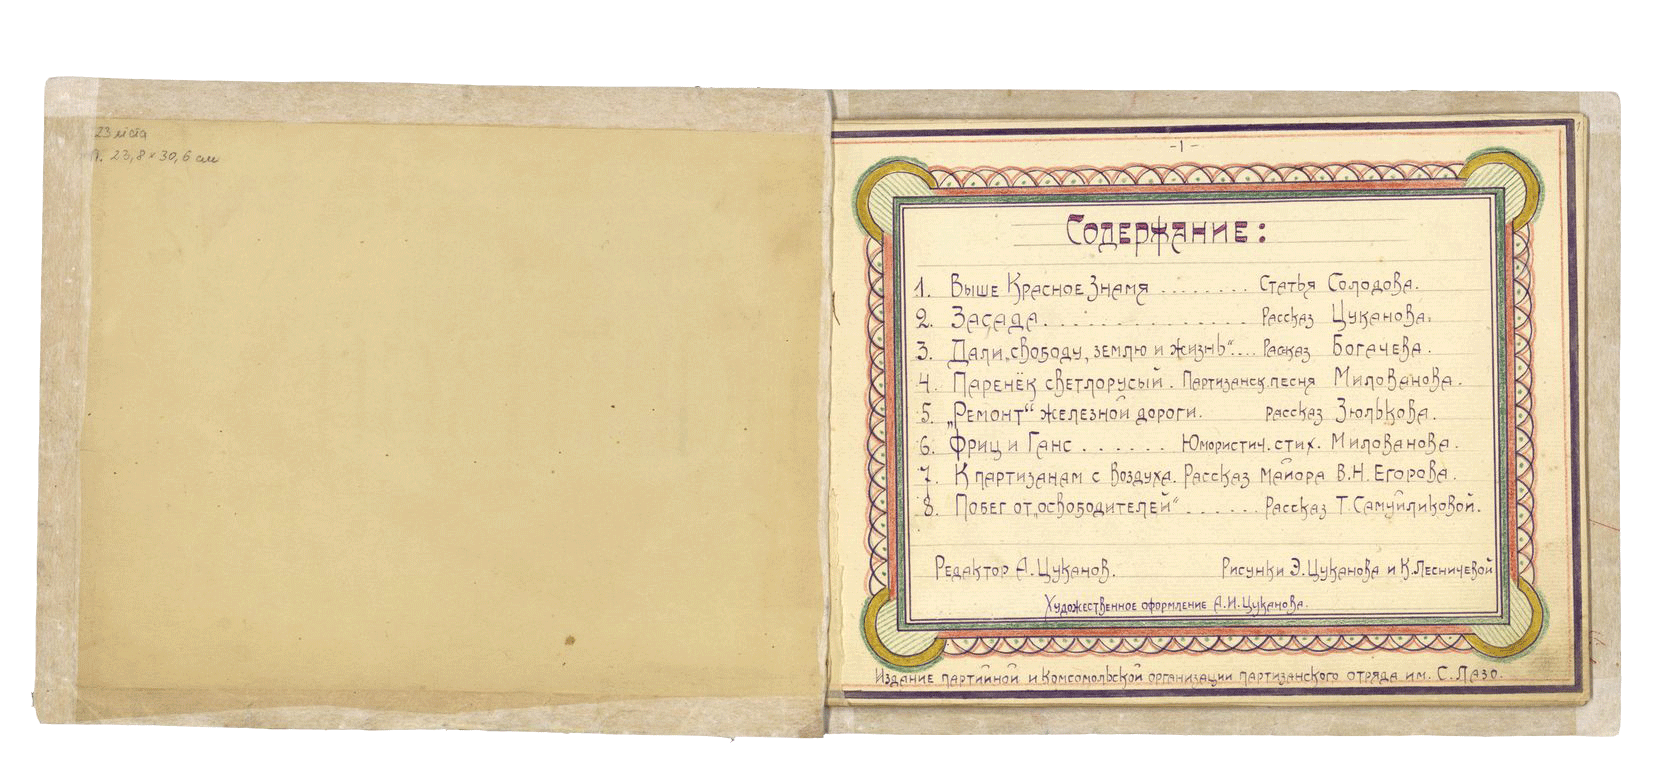 23 ліста
п. 23,8 × 30,6 см
1
-1-
Содержание:
1. Выше Красное Знамя ........ Статья Солодова.
2. Засада. .............. Рассказ Цуканова.
3. Дали „свободу, землю и жизнь“.... Расказ Богачева.
4. Паренёк светлорусый. Партизанск. песня Милованова.
5. „Ремонт“ железной дороги. рассказ Зюлькова.
6. Фриц и Ганс ....... Юмористич. стих. Милованова.
7. К партизанам с воздуха. Рассказ майора В.Н. Егорова.
8. Побег от „освободителей“ ...... Рассказ Т. Самуйликовой.
Редактор А. Цуканов. Рисунки Э. Цуканова и К. Лесничевой
Художественное оформление А.И. Цуканова.
Издание партийной и комсомольской организации партизанского отряда им. С. Лазо.